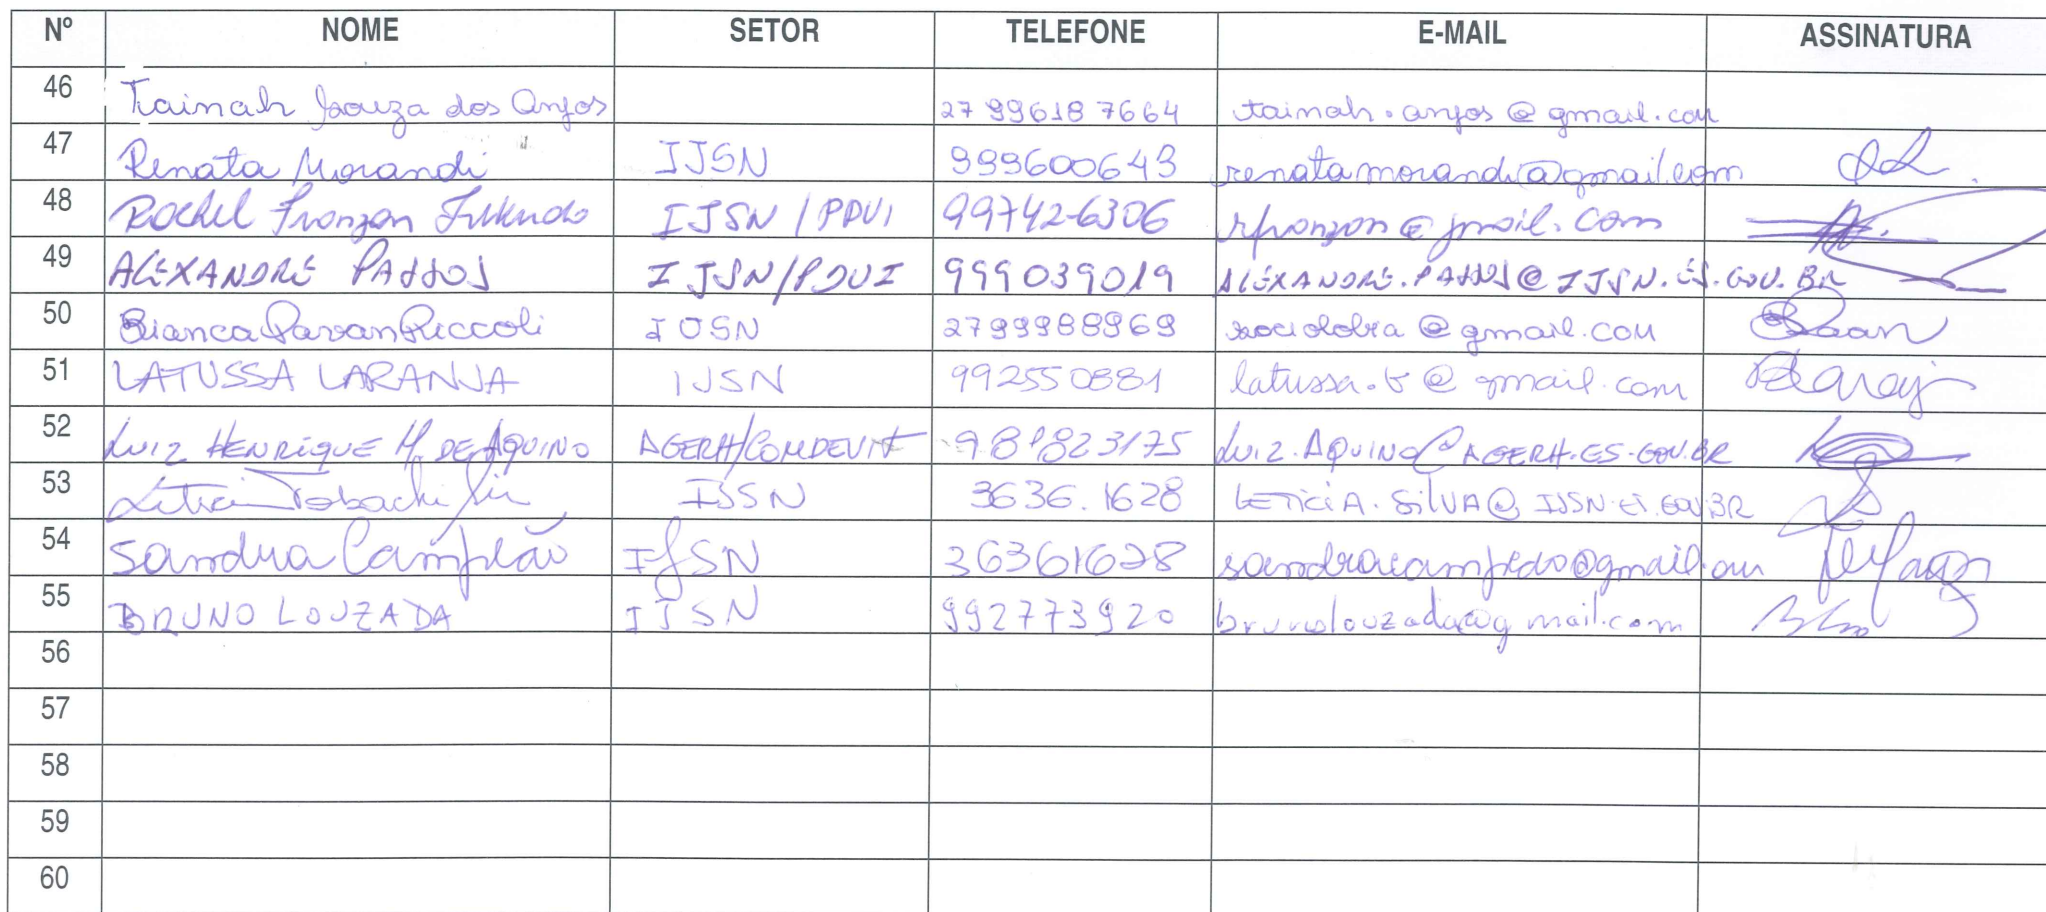 Nº NOME SETOR TELEFONE E-MAIL ASSINATURA
46 Tainah Souza dos Anjos 27 996187664 tainah.anjos@gmail.com
47 Renata Morandi IJSN 999600643 renatamorandi@gmail.com
48 IJSN / PDUI 99742-6306 rfronzon@gmail.com
49 ALEXANDRE PASSOS IJSN/PDUI 999039019 ALEXANDRE.PASSOS@IJSN.ES.GOV.BR
50 Bianca Pavan Piccoli IJSN 2799988969 @gmail.com
51 LATUSSA LARANJA IJSN 992550881 latussa.b@gmail.com
52 LUIZ HENRIQUE M. DE AQUINO AGERH/COMDEVIT 981823175 LUIZ.AQUINO@AGERH.ES.GOV.BR
53 IJSN 3636.1628 LETICIA.SILVA@IJSN.ES.GOV.BR
54 Sandra Campeão IJSN 36361628
55 BRUNO LOUZADA IJSN 992773920 brunolouzada@gmail.com
56
57
58
59
60